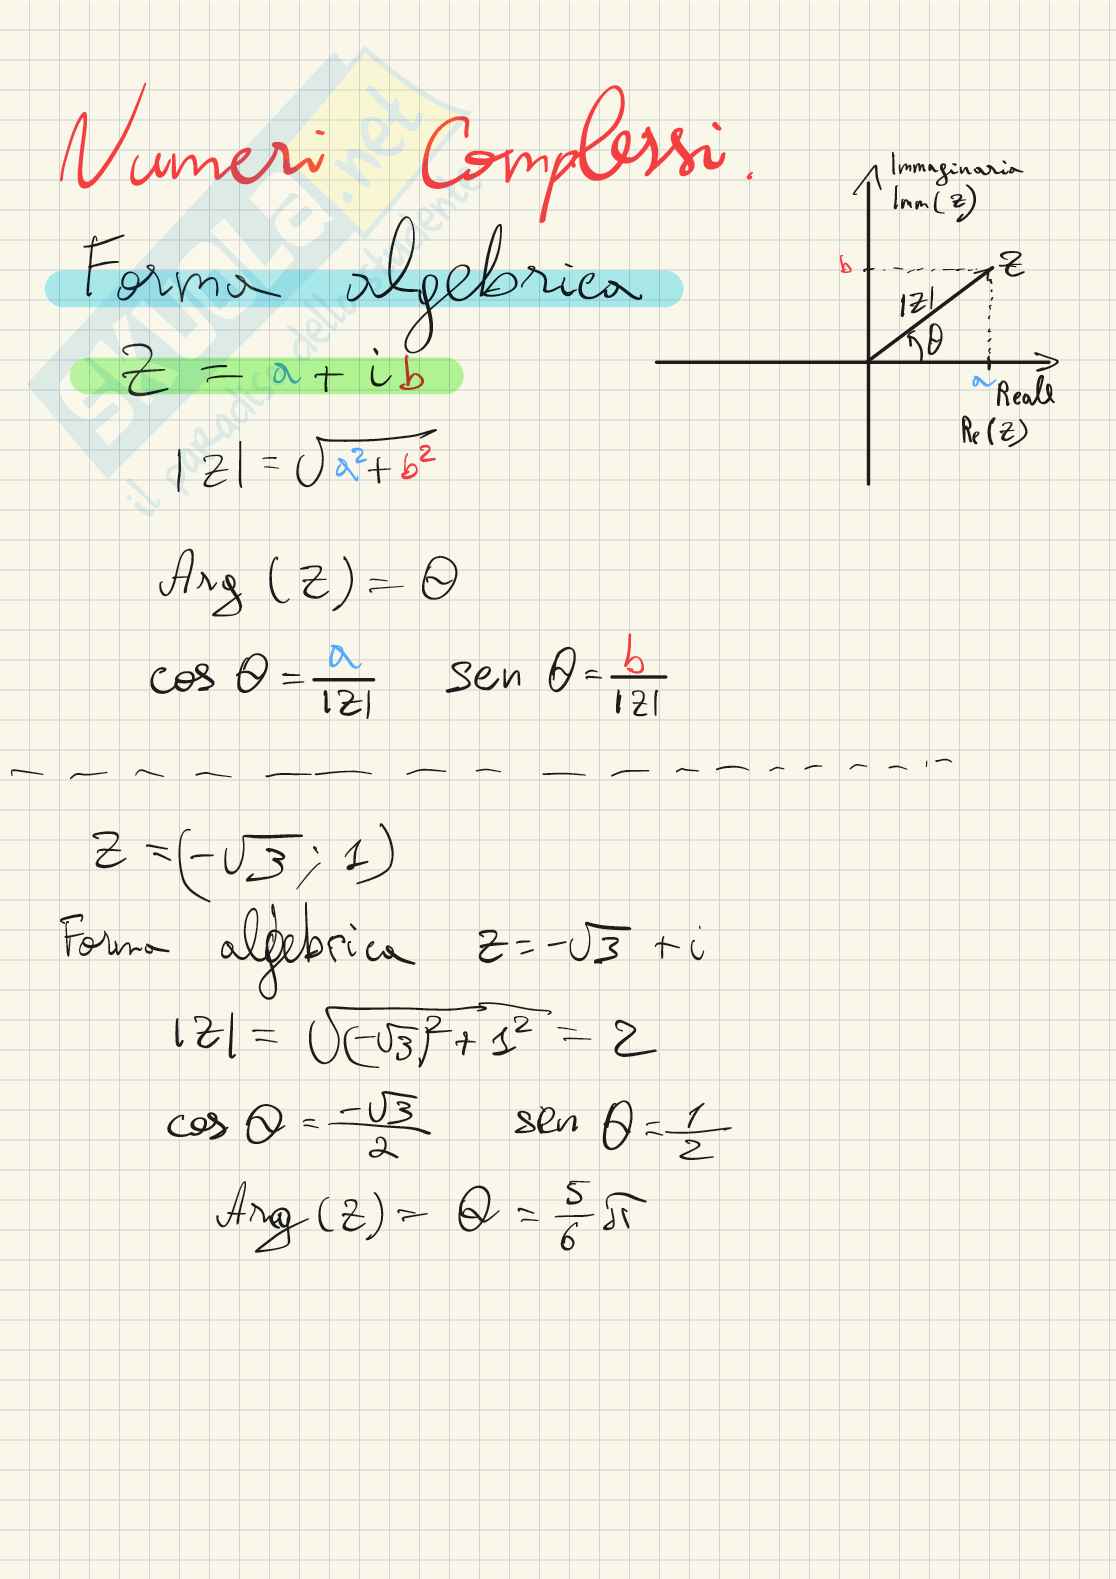 Numeri Complessi.
Forma algebrica
z = a + i b
|z| = √(a² + b²)
Arg (z) = θ
cos θ = a/|z|    sen θ = b/|z|
Immaginaria
Imm(z)
b
z
|z|
θ
a
Reale
Re(z)
z = (-√3 ; 1)
Forma algebrica    z = -√3 + i
|z| = √((-√3)² + 1²) = 2
cos θ = -√3/2    sen θ = 1/2
Arg (z) = θ = 5/6 π
SKUOLA.net
il paradiso dello studente